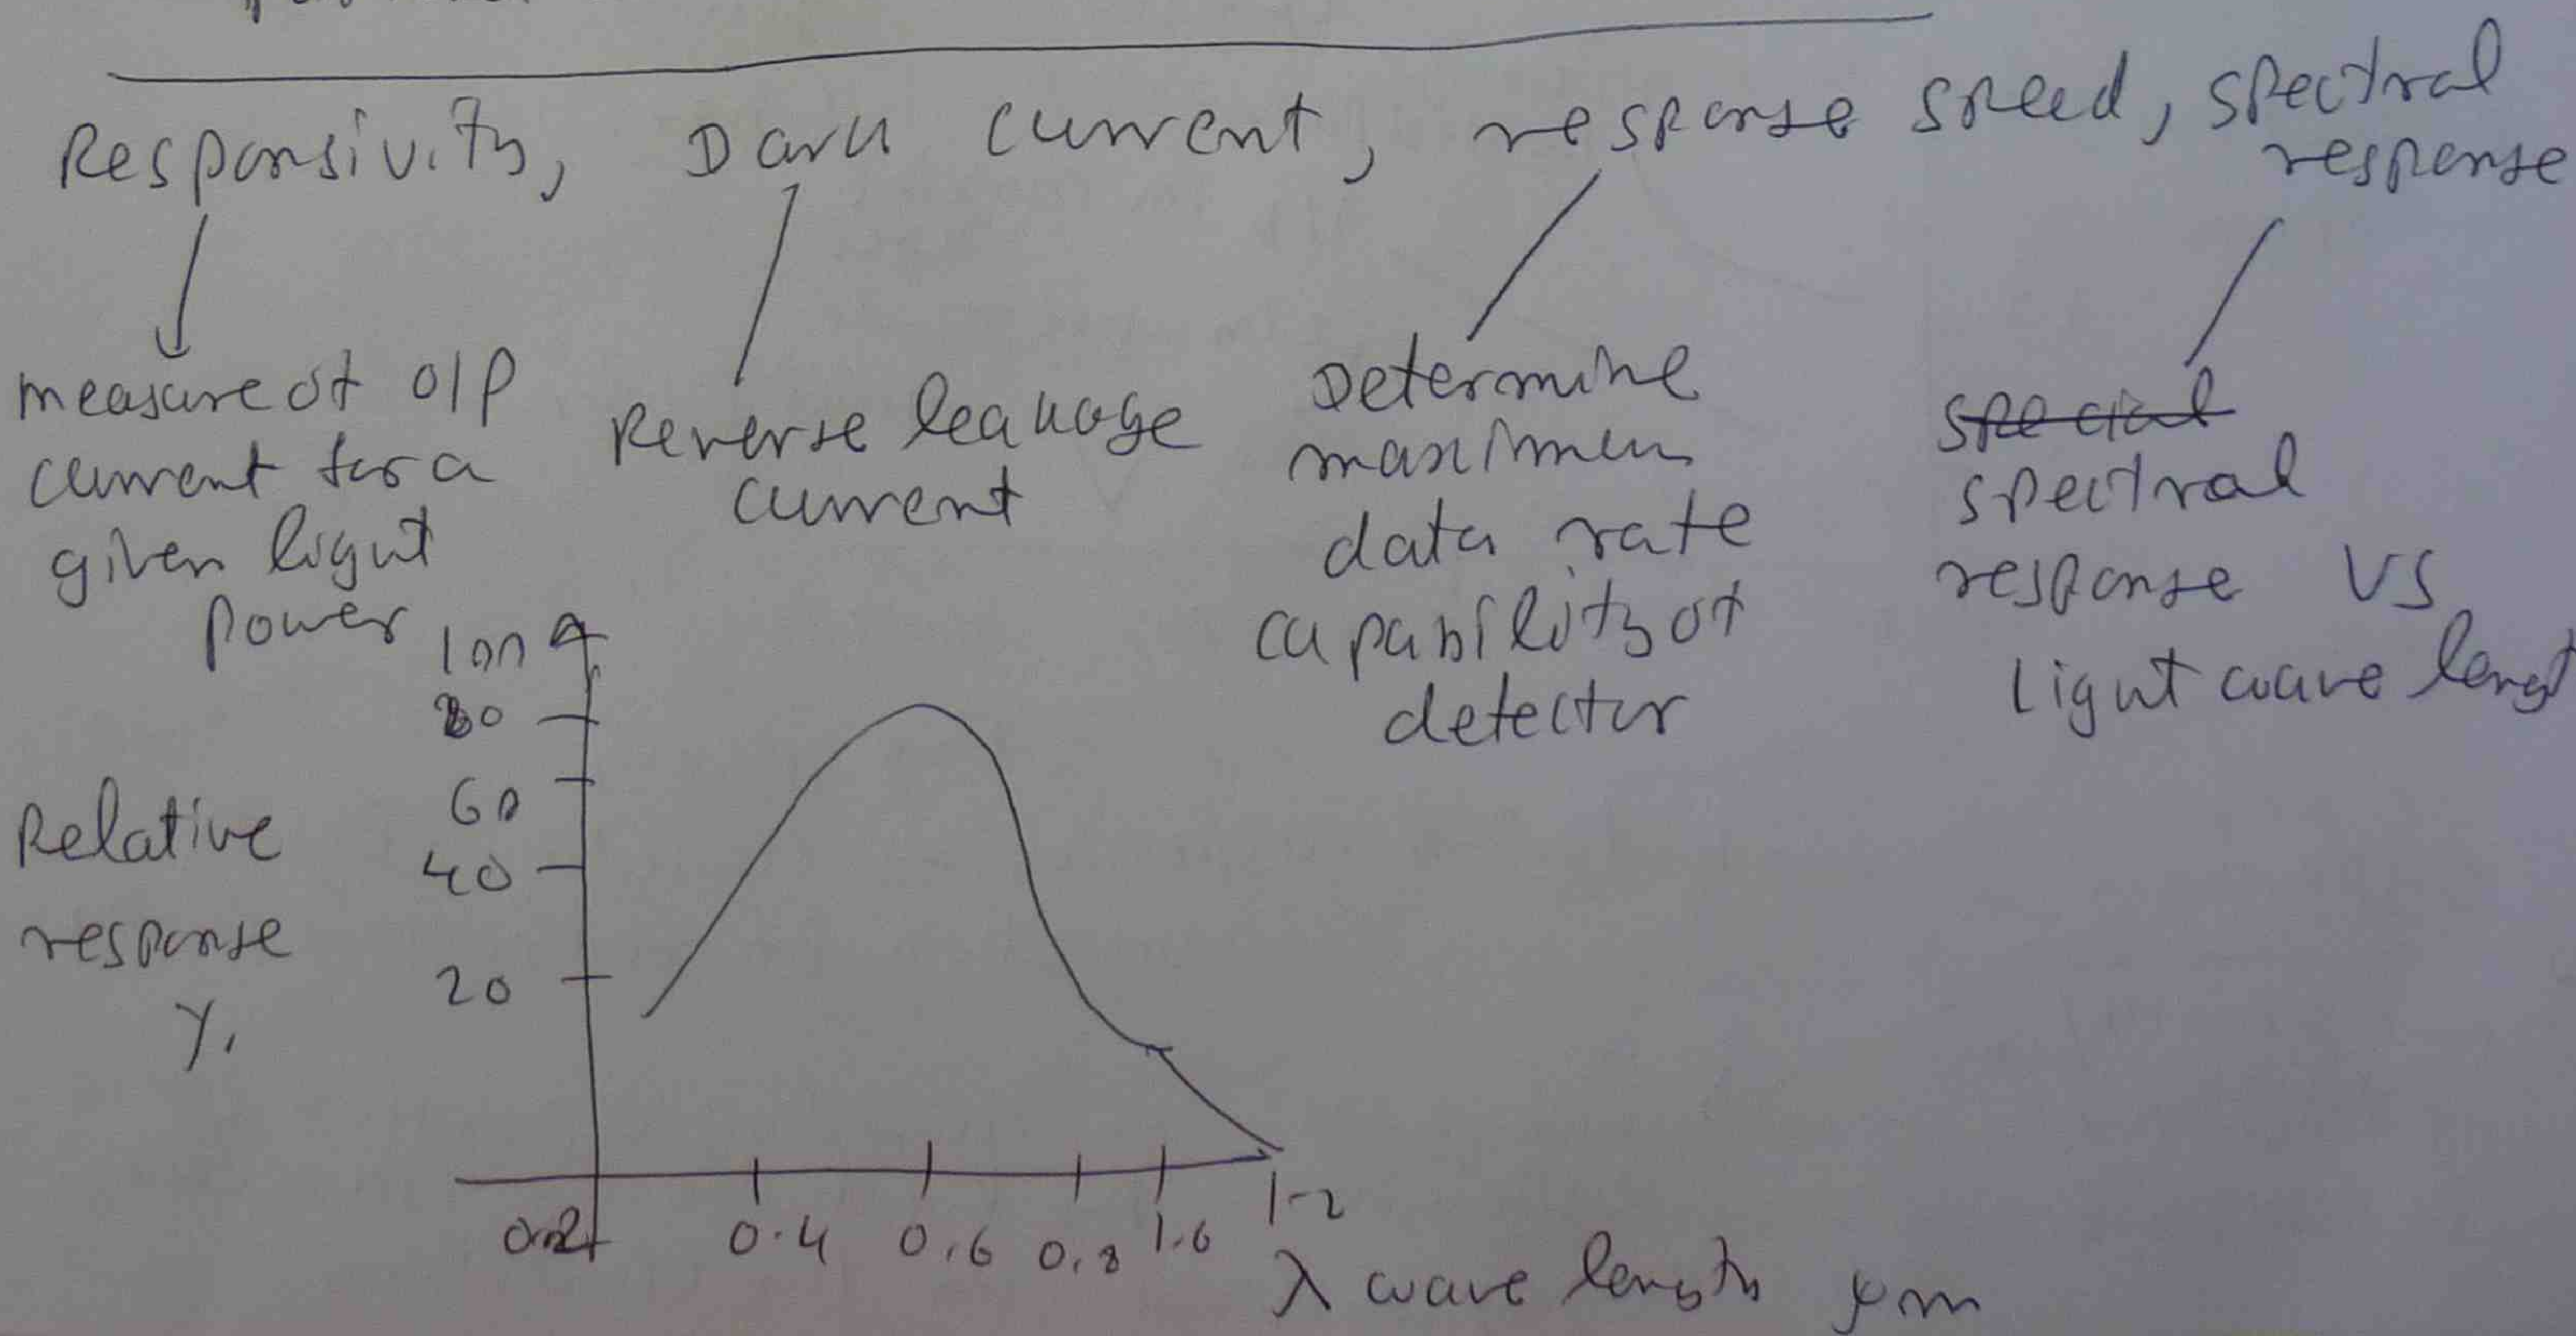 Responsivity, Dark current, response speed, spectral
response
measure of o/p
current for a
given light
power
Reverse leakage
current
Determine
maximum
data rate
capability of
detector
special
spectral
response VS
Light wave lengt
100
80
60
40
20
Relative
response
%
0.2
0.4
0.6
0.8
1.0
1.2
λ wave length μm